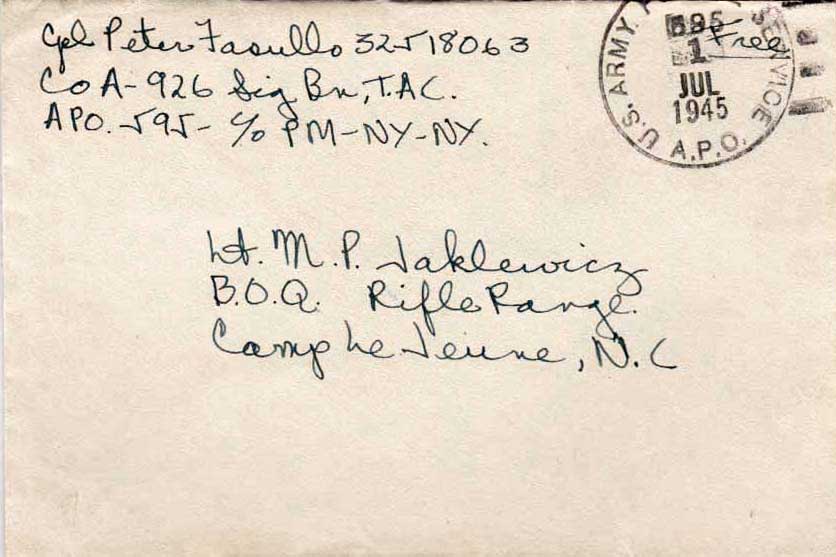 Cpl Peter Fasullo 32518063
Co A-926 Sig Bn, T.A.C.
APO. 595- c/o PM-NY-NY.
Free
U.S. ARMY SERVICE
595
1
JUL
1945
A.P.O.
Lt. M.P. Jaklewicz
B.O.Q. Rifle Range.
Camp Le Jeune, N.C